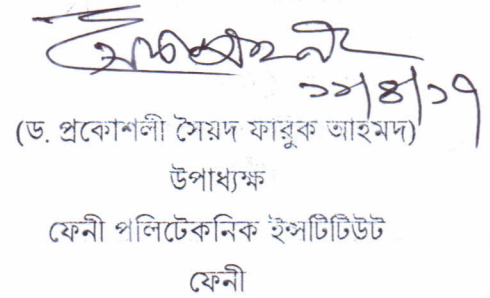 ১১/৪/১৭
(ড. প্রকোশলী সৈয়দ ফারুক আহমদ)
উপাধ্যক্ষ
ফেনী পলিটেকনিক ইন্সটিটিউট
ফেনী